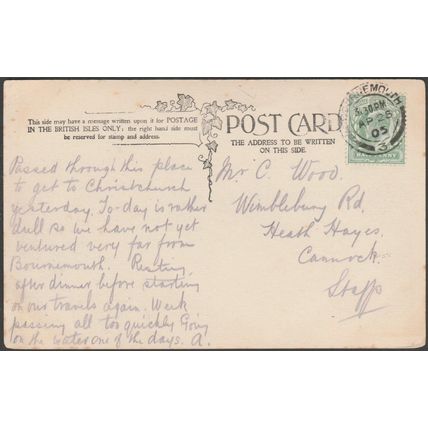 This side may have a message written upon it for POSTAGE
IN THE BRITISH ISLES ONLY; the right hand side must
be reserved for stamp and address.
POST CARD
THE ADDRESS TO BE WRITTEN
ON THIS SIDE.
Passed through this place
to get to Christchurch
yesterday. To-day is rather
dull so we have not yet
ventured very far from
Bournemouth. Resting
after dinner before starting
on our travels again. Week
passing all too quickly Going
on the water one of the days. A.
Mr C. Wood.
Wimblebury Rd,
Heath Hayes,
Cannock,
Staffs
30 PM
05
3